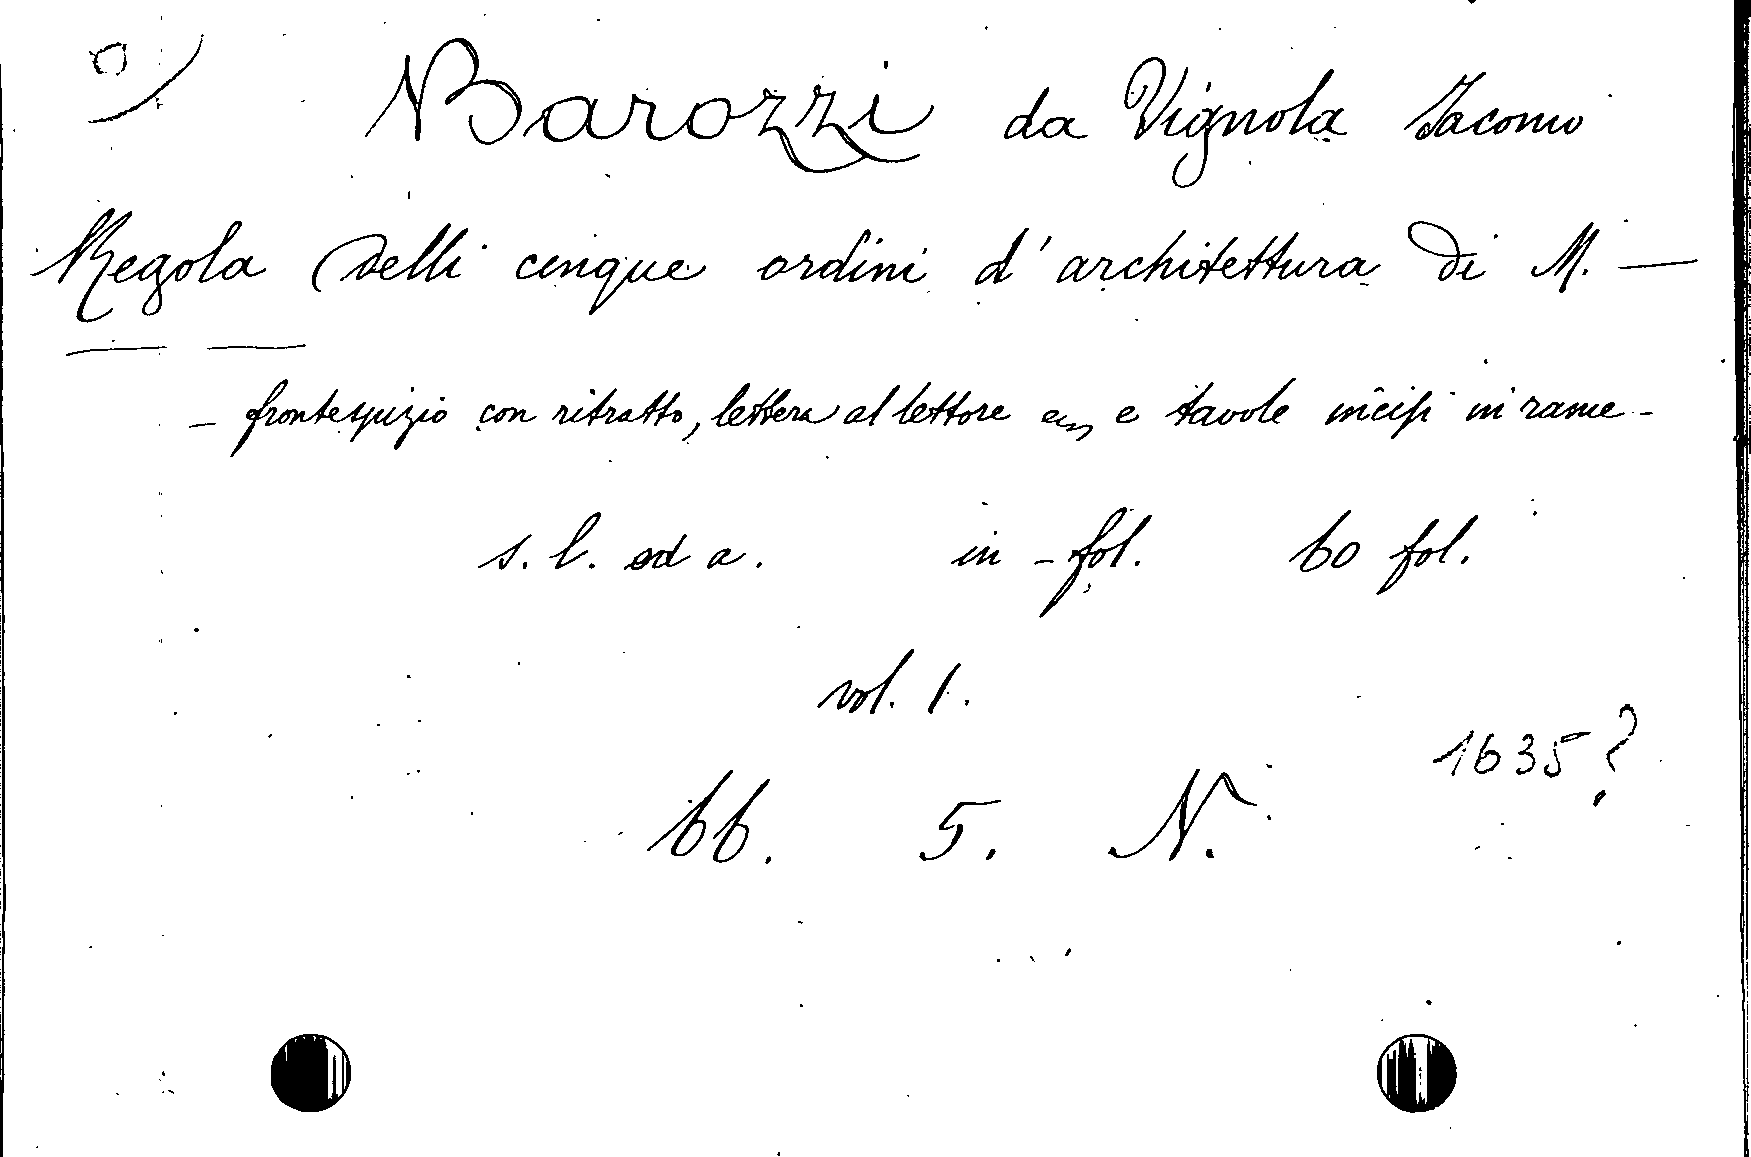 Barozzi da Vignola Jacomo
Regola delli cinque ordini d'architettura di M. —
— —
- frontespizio con ritratto, lettera al lettore e tavole incisi in rame -
s. l. ed a. in-fol. 60 fol.
vol. 1.
1635?
66. 5. N.